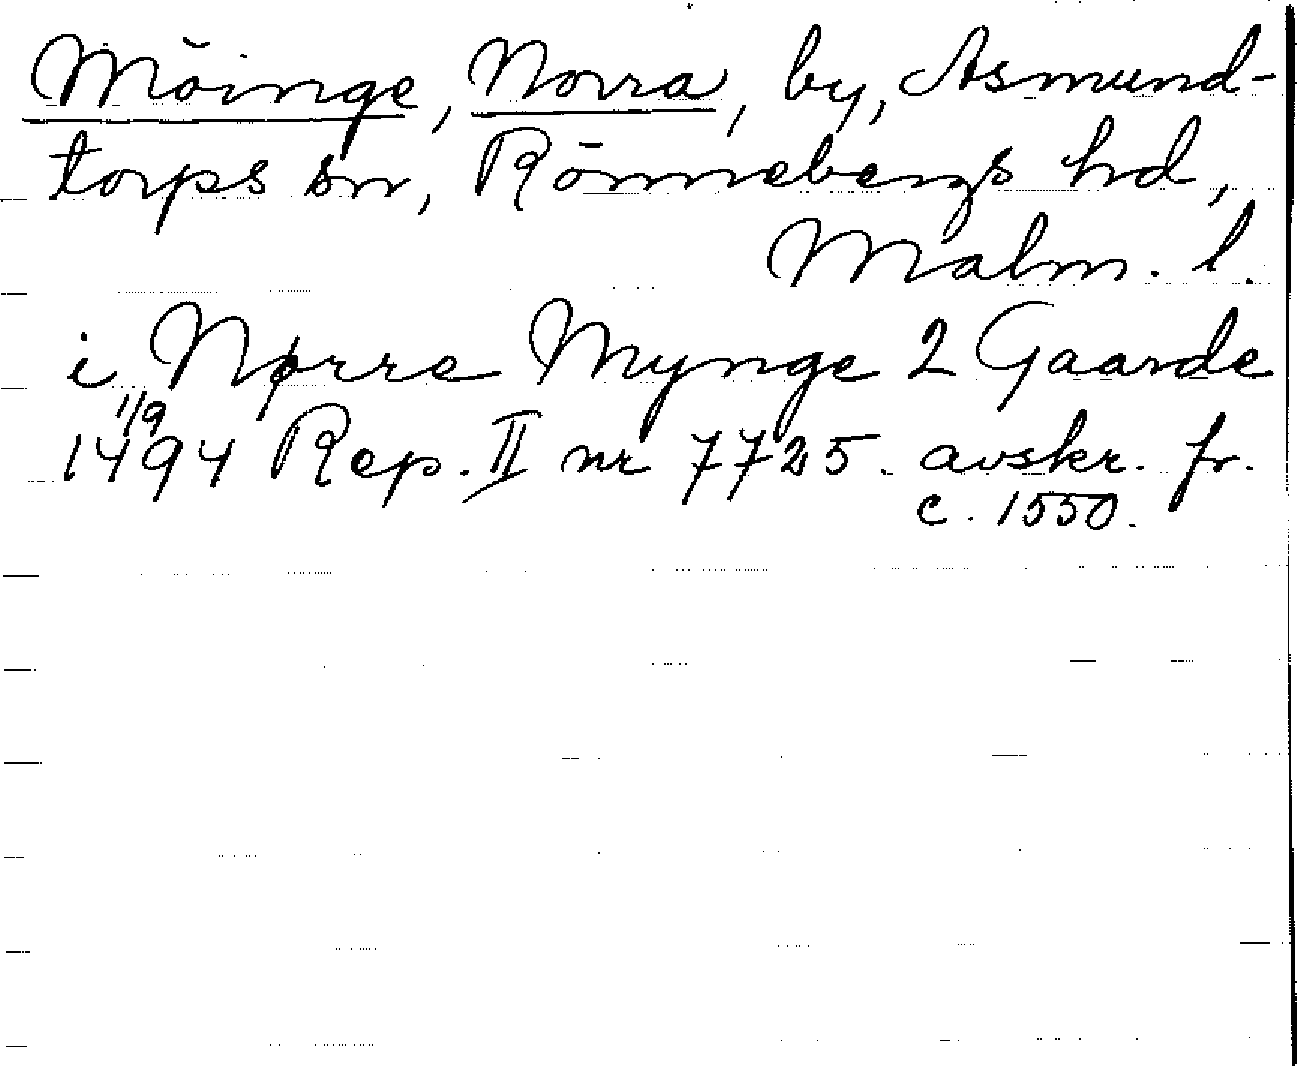 Möinge, Norra, by, Asmund-
torps sn, Rönnebergs hd,
Malm. l.
i Nørre Mynge 2 Gaarde
1/9
1494 Rep. II nr 7725. avskr. fr.
c. 1550.